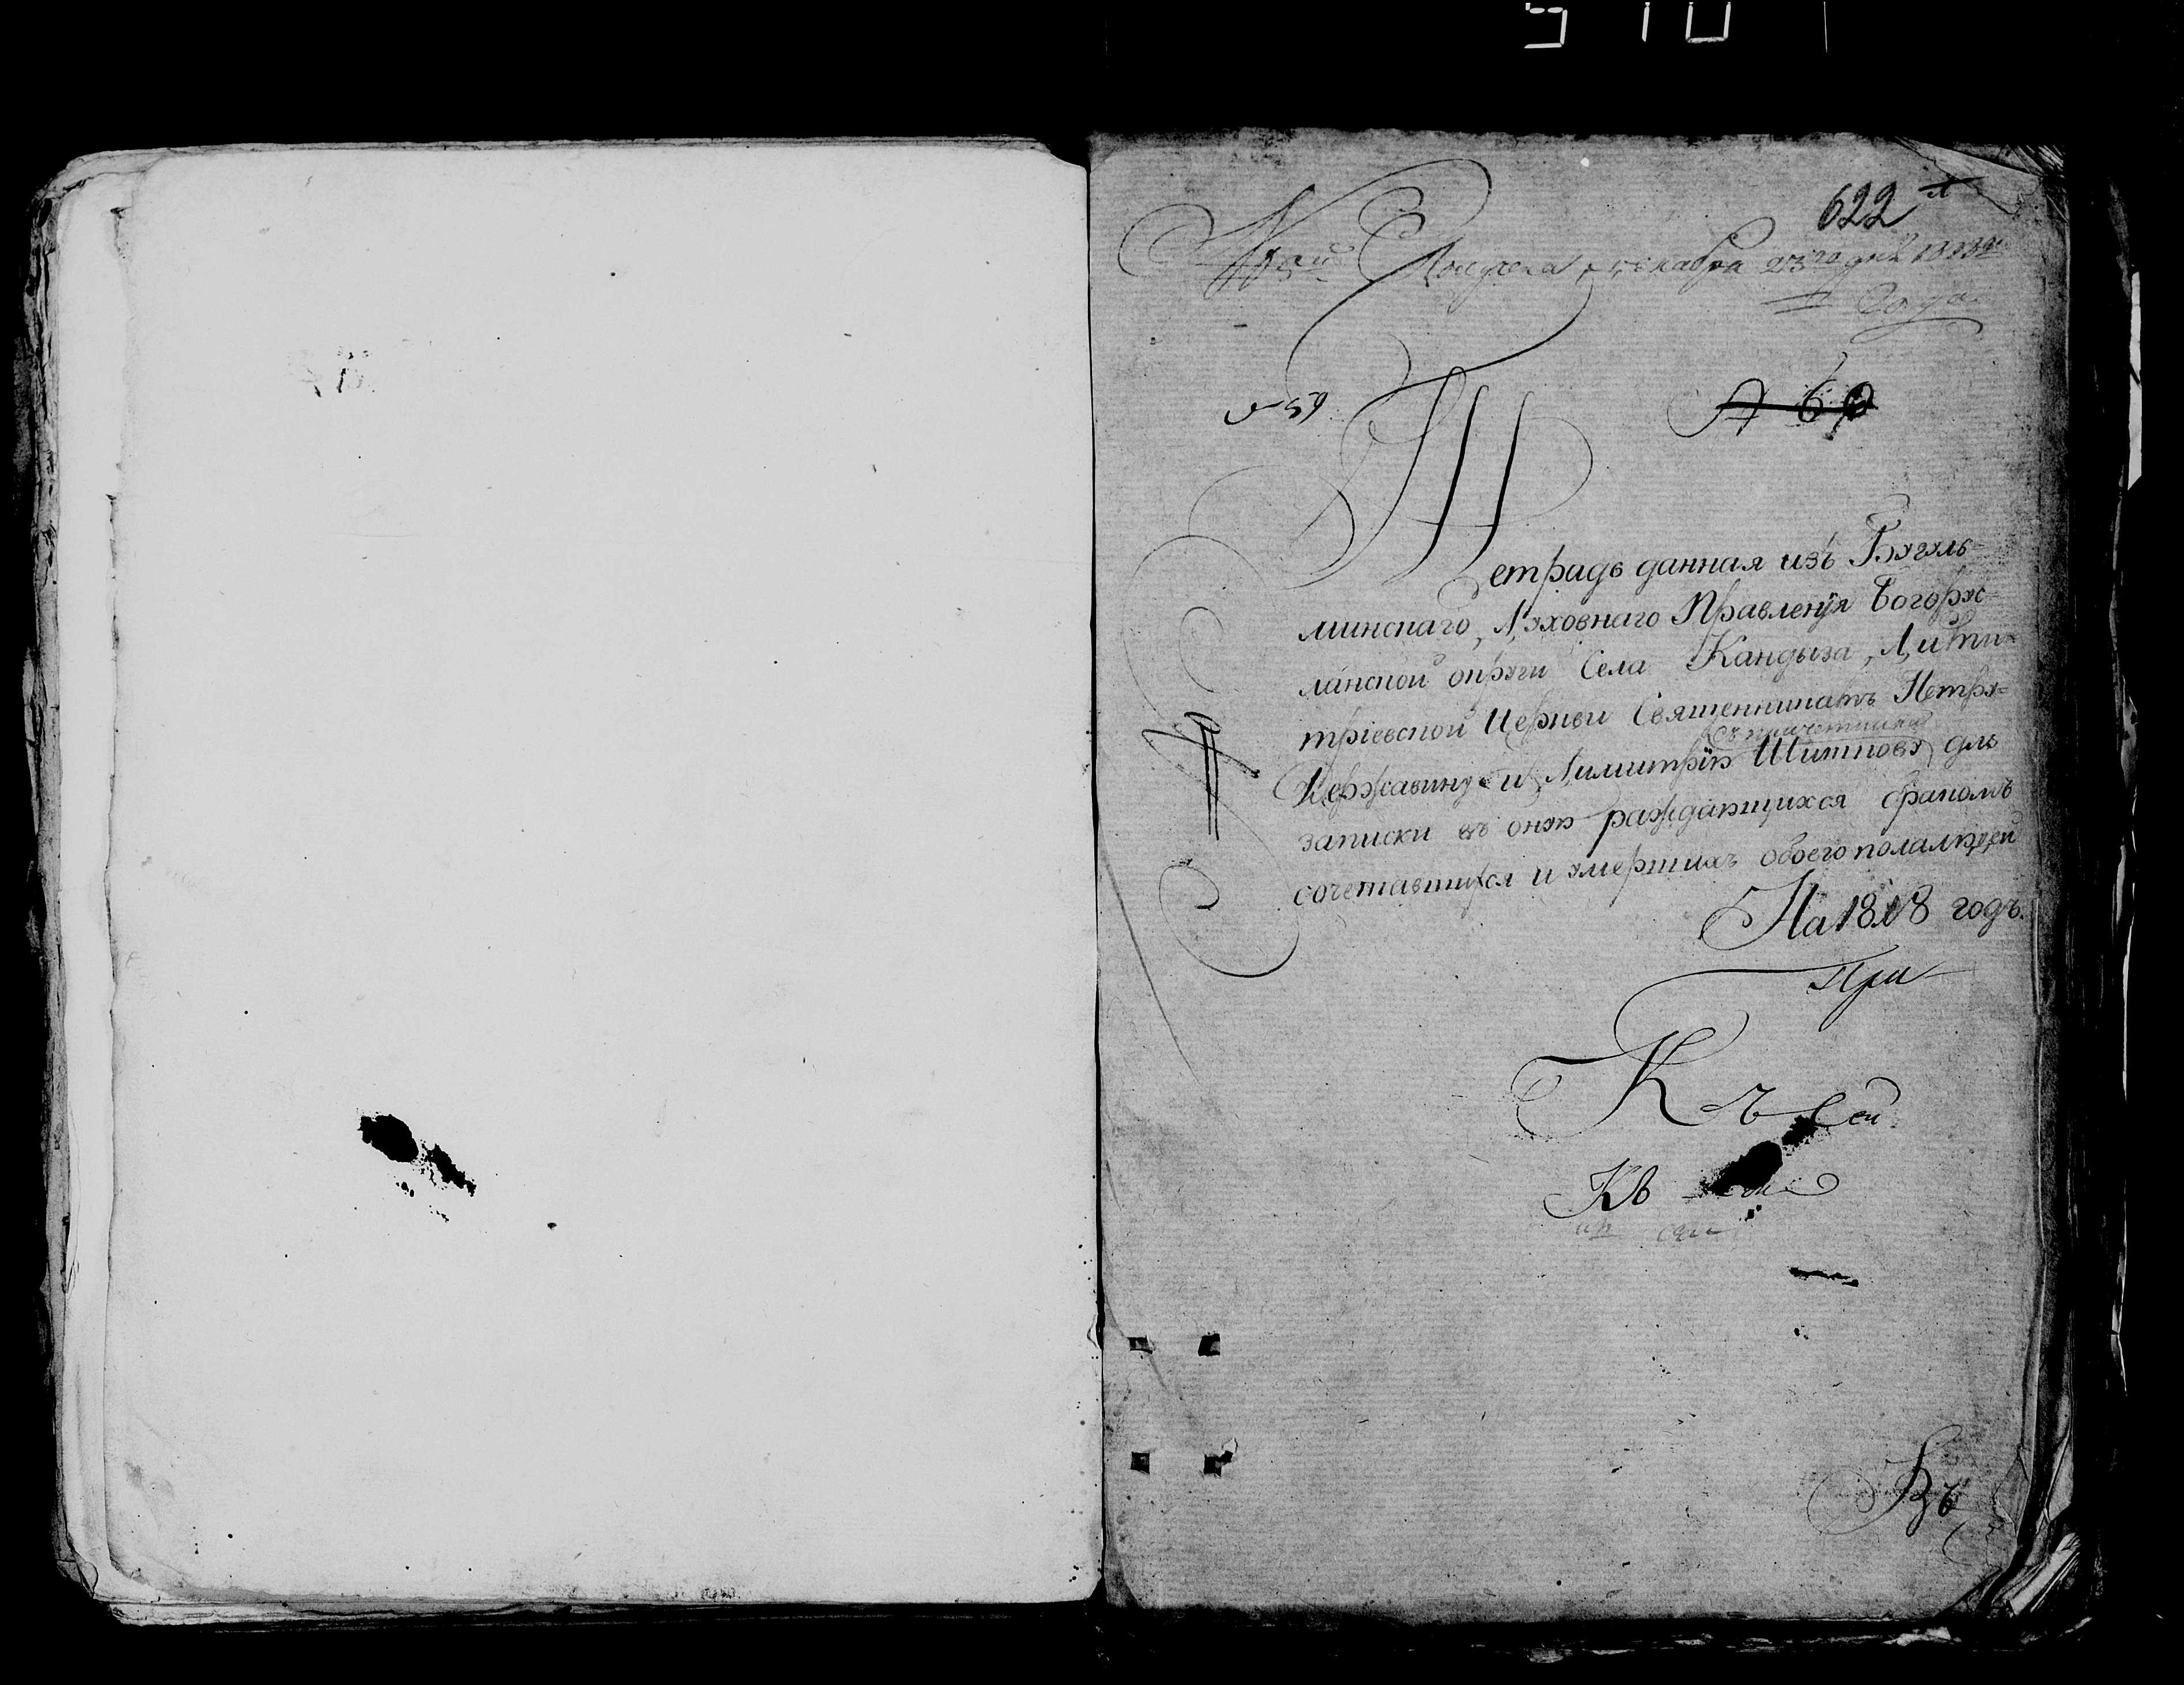 622
Получена декабря 23го дня
Года
№ 59
Тетрадь данная изъ Бугуль-
минскаго Духовнаго Правленїя Богорус-
ланской округи Села Кандыза, Дими-
трїевской церкви Священникамъ Петру
съ причетники
Державину и Димитрїю Шитнову для
записки въ оную раждающихся бракомъ
сочетавшихся и умершихъ обоего пола людей
На 1818 годъ.
При
Къ сей
Къ